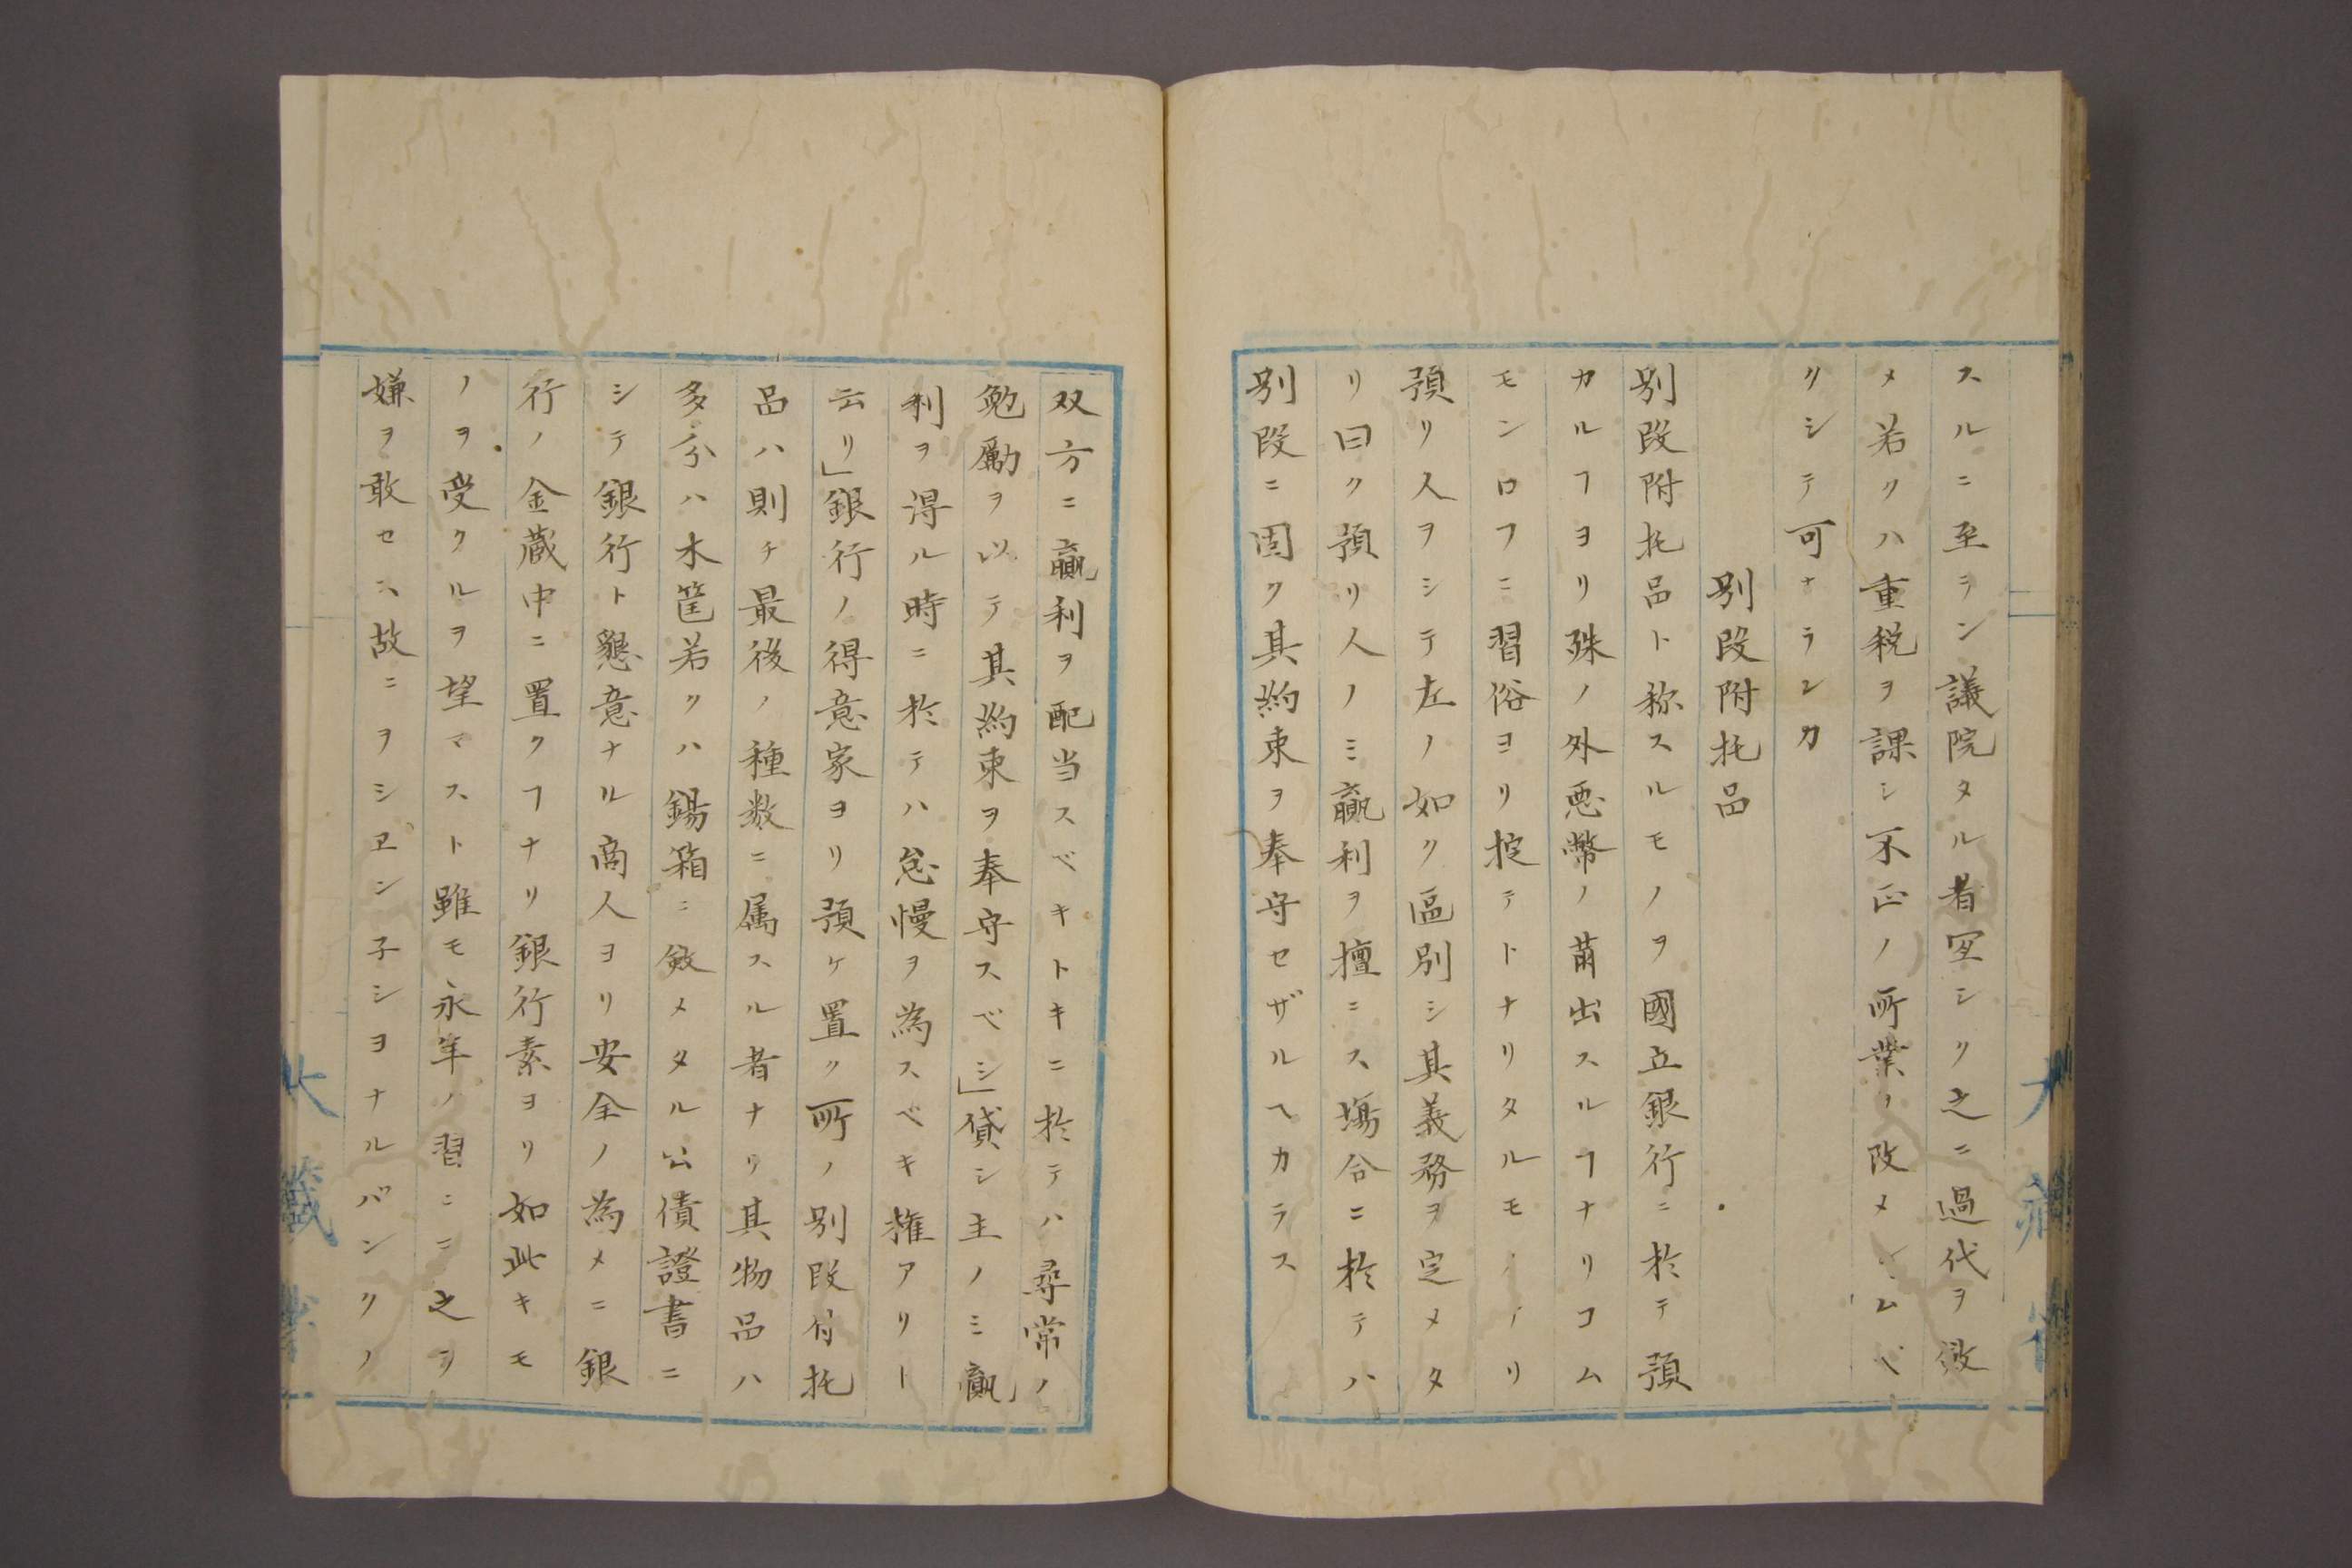 スルニ至ラン議院タル者宜シク之ニ過代ヲ徴
メ若クハ重税ヲ課シ不正ノ所業ヲ改メシムベ
クシテ可ナランカ
別段附托品
別段附托品ト称スルモノヲ國立銀行ニ於テ預
カルヿヨリ殊ノ外悪幣ノ萠出スルヿナリコム
モンロフニ習俗ヨリ掟テトナリタルモノアリ
預リ人ヲシテ左ノ如ク區別シ其義務ヲ定メタ
リ曰ク預リ人ノミ贏利ヲ擅ニス塲合ニ於テハ
別段ニ固ク其約束ヲ奉守セザルヘカラス
双方ニ贏利ヲ配当スベキトキニ於テハ尋常ノ
勉勵ヲ以テ其約束ヲ奉守スベシ」貸シ主ノミ贏
利ヲ得ル時ニ於テハ怠慢ヲ為スベキ権アリト
云リ」銀行ノ得意家ヨリ預ケ置ク所ノ別段付托
品ハ則チ最後ノ種数ニ属スル者ナリ其物品ハ
多分ハ木筐若クハ錫箱ニ斂メタル公債證書ニ
シテ銀行ト懇意ナル商人ヨリ安全ノ為メニ銀
行ノ金蔵中ニ置クヿナリ銀行素ヨリ如此キモ
ノヲ受クルヲ望マスト雖モ永年ノ習ニニ之ヲ
嫌ヲ敢セス故ニヲシヱン子シヨナルバンクノ
大藏省